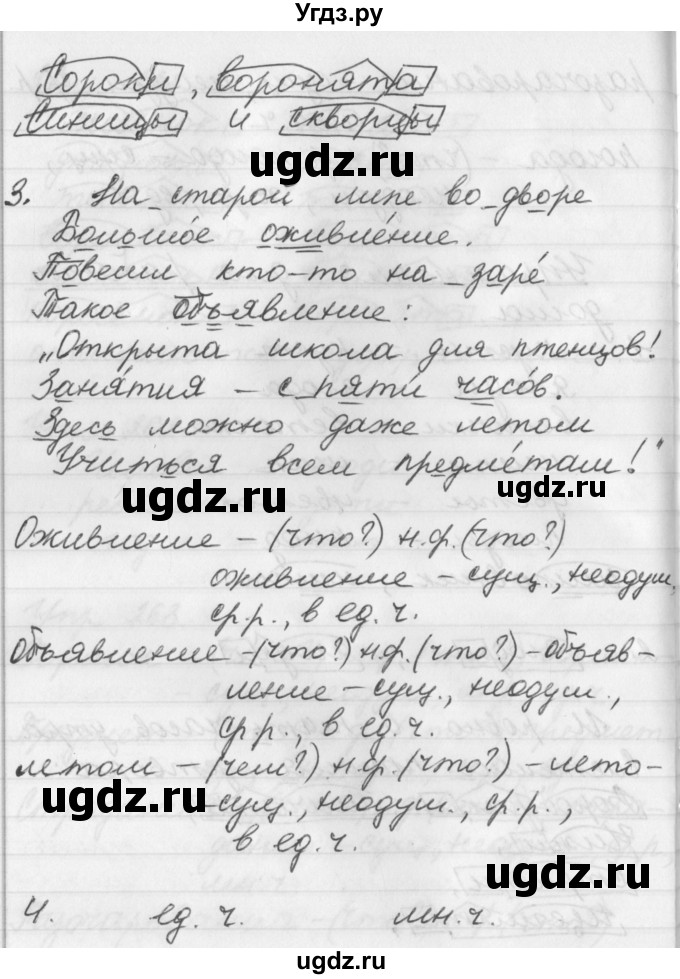 Угдз.ру
Сороки, воронята
Синицы и скворцы
ugdz.ru
3. На старой липе во дворе
Большое оживление.
Повесил кто-то на заре
Такое объявление:
„Открыта школа для птенцов!
Занятия – с пяти часов.
Здесь можно даже летом
Учиться всем предметам!"
ugdz.ru
ugdz.ru
Оживление – (что?) н.ф. (что?)
оживление – сущ., неодуш.,
ср.р., в ед.ч.
ugdz.ru
Объявление – (что?) н.ф. (что?) – объяв-
ление – сущ., неодуш.,
ср.р., в ед.ч.
летом – (чем?) н.ф. (что?) – лето –
сущ., неодуш., ср.р.,
в ед.ч.
ugdz.ru
ugdz.ru
4. ед.ч. мн.ч.
ugdz.ru